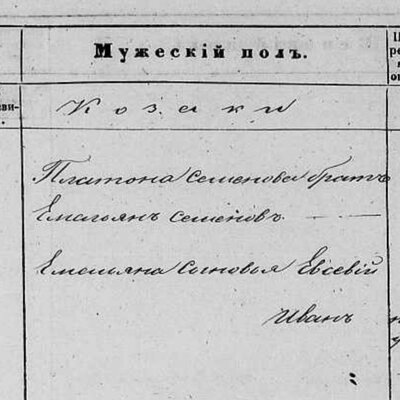 Мужескій полъ.
Козаки
Платона Семенова братъ
Емельянъ Семеновъ
Емельяна сыновья Евсевій
Иванъ